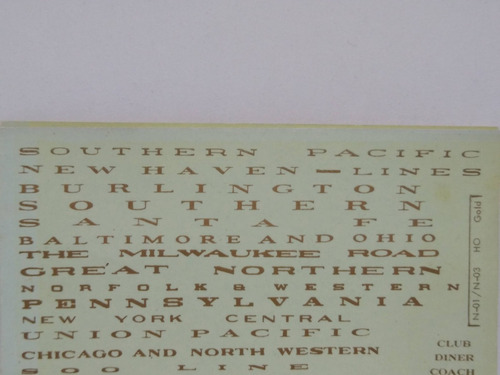 SOUTHERN PACIFIC
NEW HAVEN — LINES
BURLINGTON
SOUTHERN
SANTA FE
BALTIMORE AND OHIO
THE MILWAUKEE ROAD
GREAT NORTHERN
NORFOLK & WESTERN
PENNSYLVANIA
NEW YORK CENTRAL
UNION PACIFIC
CHICAGO AND NORTH WESTERN
SOO LINE
CLUB
DINER
COACH
N-01/N-03 HO Gold